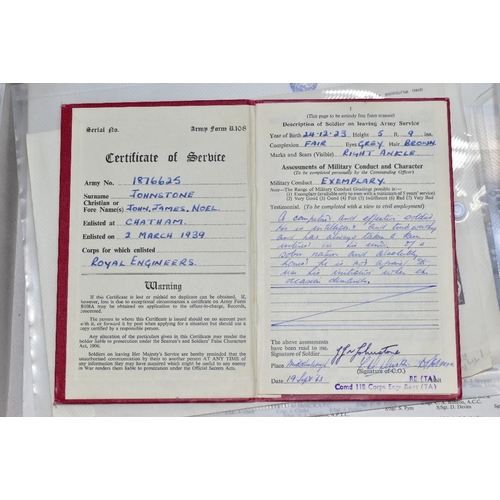 Serial No. Army Form B.108
Certificate of Service
Army No. 1876625
Surname JOHNSTONE
Christian or
Fore Name(s) JOHN, JAMES, NOEL.
Enlisted at CHATHAM.
Enlisted on 2 MARCH 1939
Corps for which enlisted
ROYAL ENGINEERS.
Warning
If this Certificate is lost or mislaid no duplicate can be obtained. If,
however, loss is due to exceptional circumstances a certificate on Army Form
B108A may be obtained on application to the officer-in-charge, Records,
concerned.
The person to whom this certificate is issued should on no account part
with it, or forward it by post when applying for a situation but should use a
copy certified by a responsible person.
Any alteration of the particulars given in this Certificate may render the
holder liable to prosecution under the Seamen's and Soldiers' False Characters
Act, 1906.
Soldiers on leaving Her Majesty's Service are hereby reminded that the
unauthorised communication by them to another person AT ANY TIME of
any information they may have acquired which might be useful to an enemy
in War renders them liable to prosecution under the Official Secrets Acts.
1
(This page to be entirely free from erasure)
Description of Soldier on leaving Army Service
Year of Birth 24-12-23 Height 5 ft. 9 ins.
Complexion FAIR Eyes GREY Hair BROWN
Marks and Scars (Visible) RIGHT ANKLE
Assessments of Military Conduct and Character
(To be completed personally by the Commanding Officer)
Military Conduct EXEMPLARY.
Note—The Range of Military Conduct Gradings possible is:—
(1) Exemplary
(2) Very Good (3) Good (4) Fair (5) Indifferent (6) Bad (7) Very Bad
Testimonial. (To be completed with a view to civil employment)
A competent and effective soldier
He is intelligent and trustworthy
and has always taken a keen
interest in his work. Of a
sober nature and absolutely
honest he is not afraid to
use his initiative when the
occasion demands.
The above assessments
have been read to me.
Signature of Soldier JJN Johnstone
Place
(Signature of C.O.)
Date 19 Sept 61
RE (TA) Unit
Comd 118 Corps Engr Regt (TA)
S/Sgt. S. Pym
S/Sgt. D. Davies